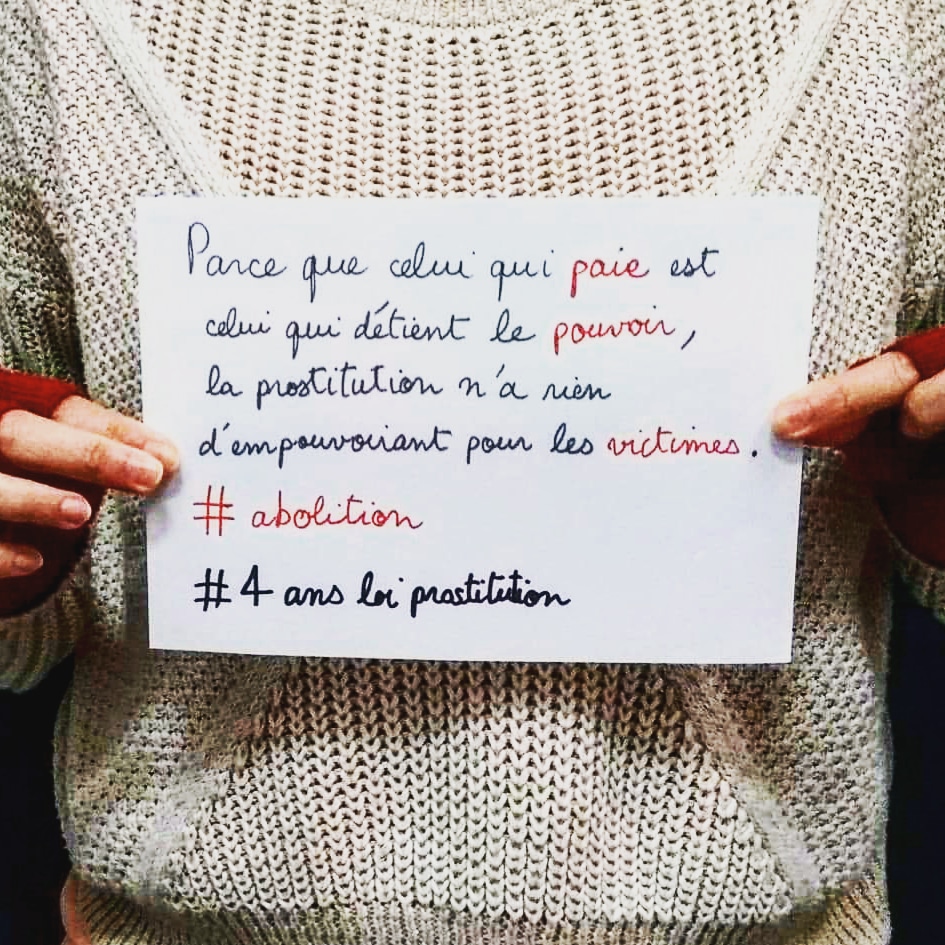 Parce que celui qui paie est
celui qui détient le pouvoir,
la prostitution n'a rien
d'empouvoirant pour les victimes.
# abolition
#4 ans loi prostitution